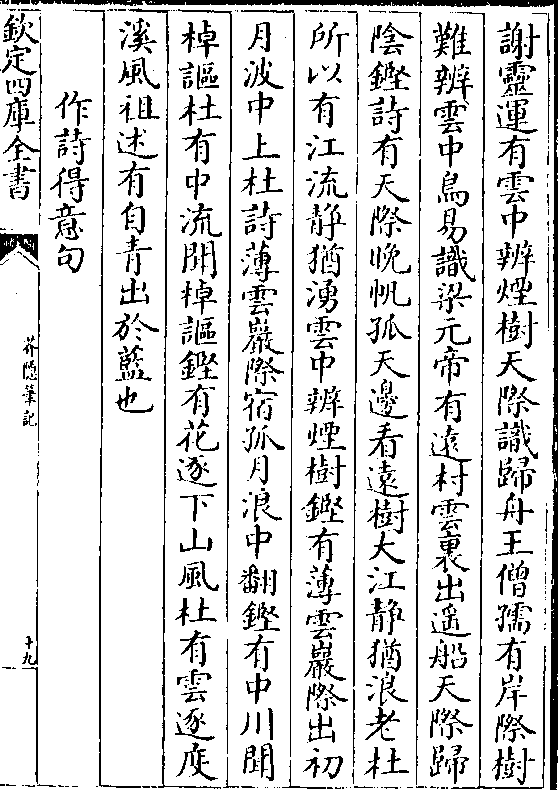 謝靈運有雲中辨煙樹天際識歸舟王僧孺有岸際樹
難辨雲中鳥易識梁元帝有遠村雲裏出遥船天際歸
陰鏗詩有天際晚帆孤天邊看遠樹大江静猶浪老杜
所以有江流静猶湧雲中辨煙樹鏗有薄雲巖際出初
月波中上杜詩薄雲巖際宿孤月浪中翻鏗有中川聞
棹謳杜有中流聞棹謳鏗有花逐下山風杜有雲逐度
溪風祖述有自青出於藍也
作詩得意句
欽定四庫全書
芥隠筆記
十九